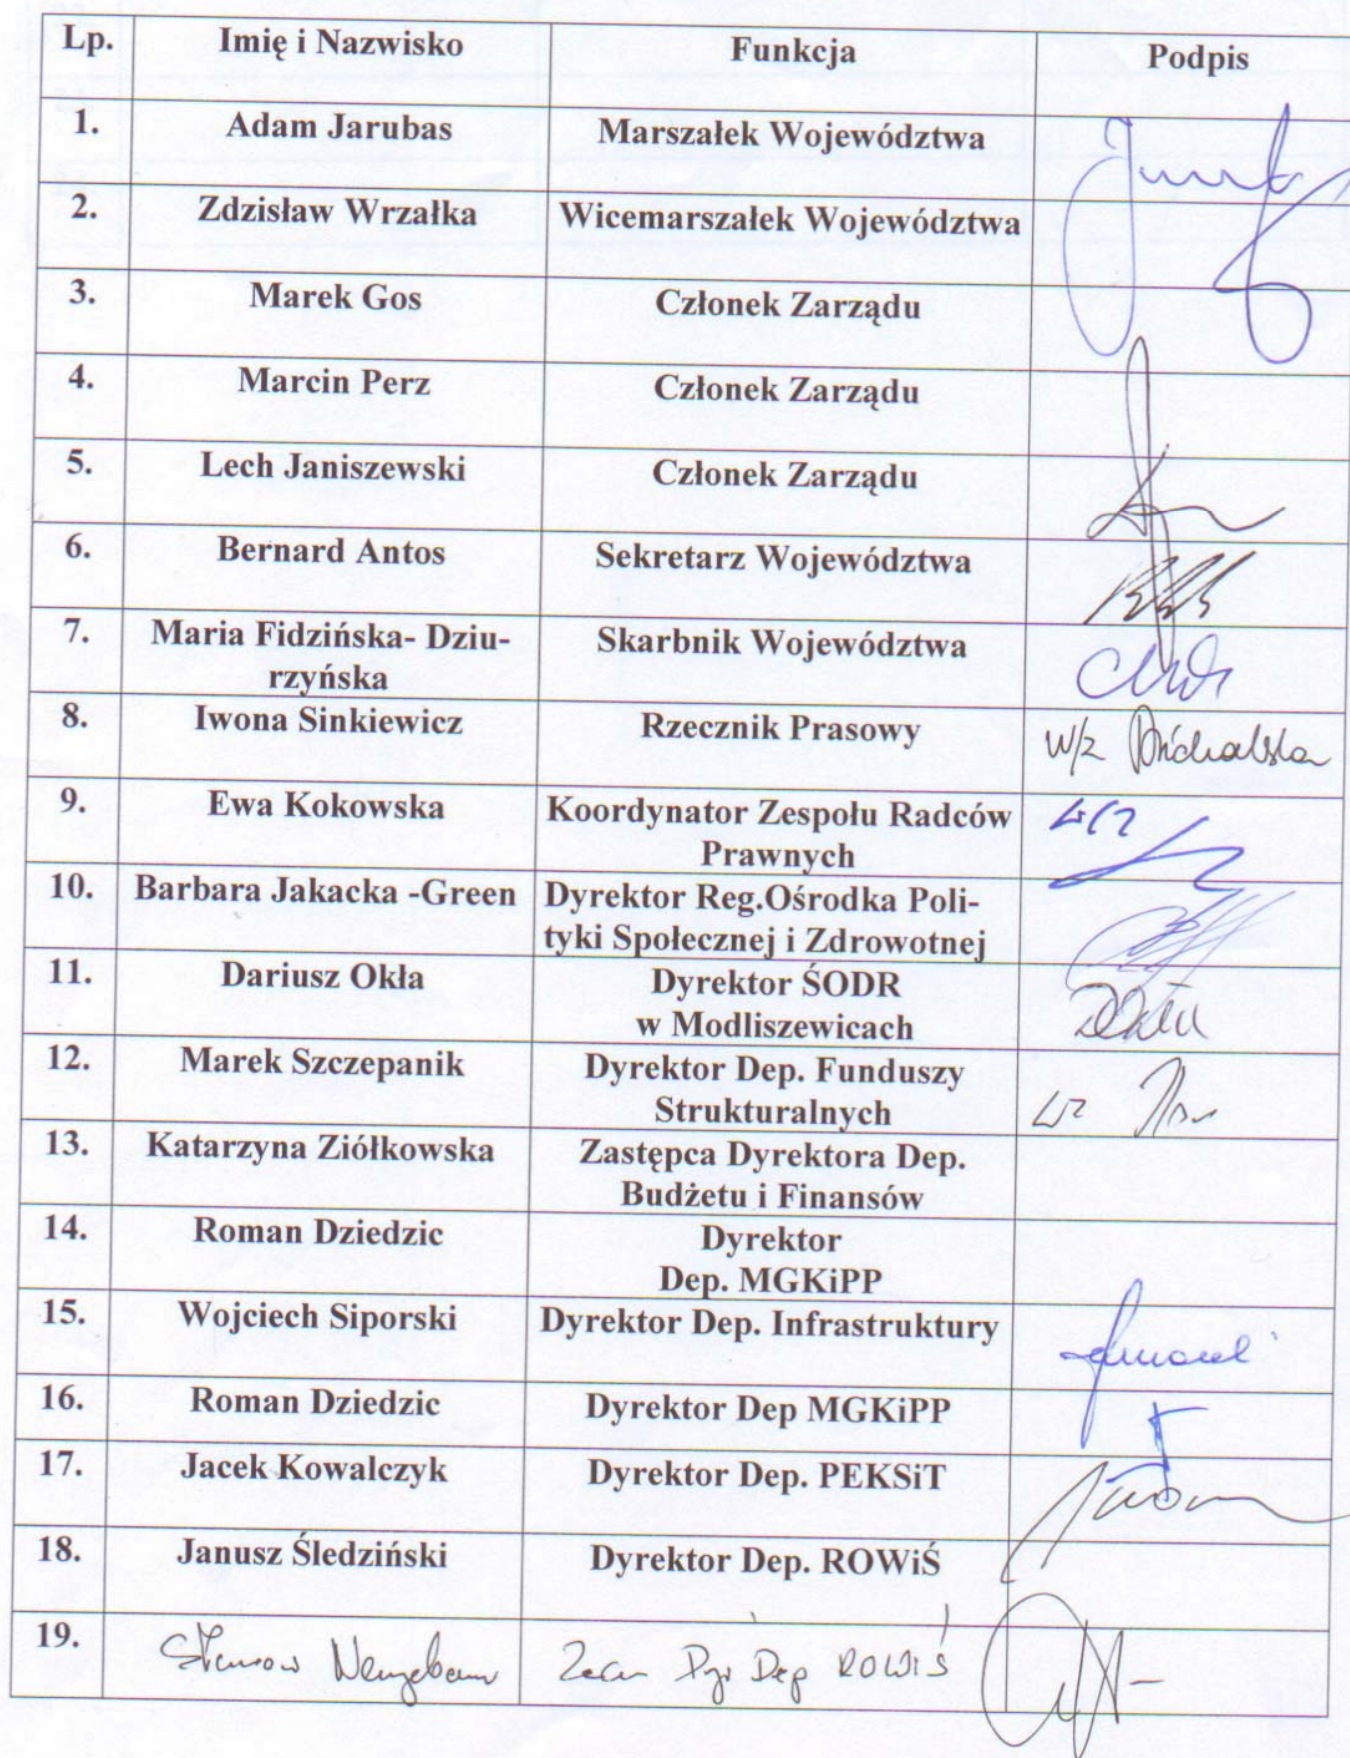 Lp. Imię i Nazwisko Funkcja Podpis
1. Adam Jarubas Marszałek Województwa
2. Zdzisław Wrzałka Wicemarszałek Województwa
3. Marek Gos Członek Zarządu
4. Marcin Perz Członek Zarządu
5. Lech Janiszewski Członek Zarządu
6. Bernard Antos Sekretarz Województwa
7. Maria Fidzińska- Dziu- Skarbnik Województwa
rzyńska
8. Iwona Sinkiewicz Rzecznik Prasowy w/z Michalska
9. Ewa Kokowska Koordynator Zespołu Radców
Prawnych
10. Barbara Jakacka -Green Dyrektor Reg.Ośrodka Poli-
tyki Społecznej i Zdrowotnej
11. Dariusz Okła Dyrektor ŚODR
w Modliszewicach
12. Marek Szczepanik Dyrektor Dep. Funduszy
Strukturalnych
13. Katarzyna Ziółkowska Zastępca Dyrektora Dep.
Budżetu i Finansów
14. Roman Dziedzic Dyrektor
Dep. MGKiPP
15. Wojciech Siporski Dyrektor Dep. Infrastruktury
16. Roman Dziedzic Dyrektor Dep MGKiPP
17. Jacek Kowalczyk Dyrektor Dep. PEKSiT
18. Janusz Śledziński Dyrektor Dep. ROWiŚ
19. Dyr Dep ROWiŚ